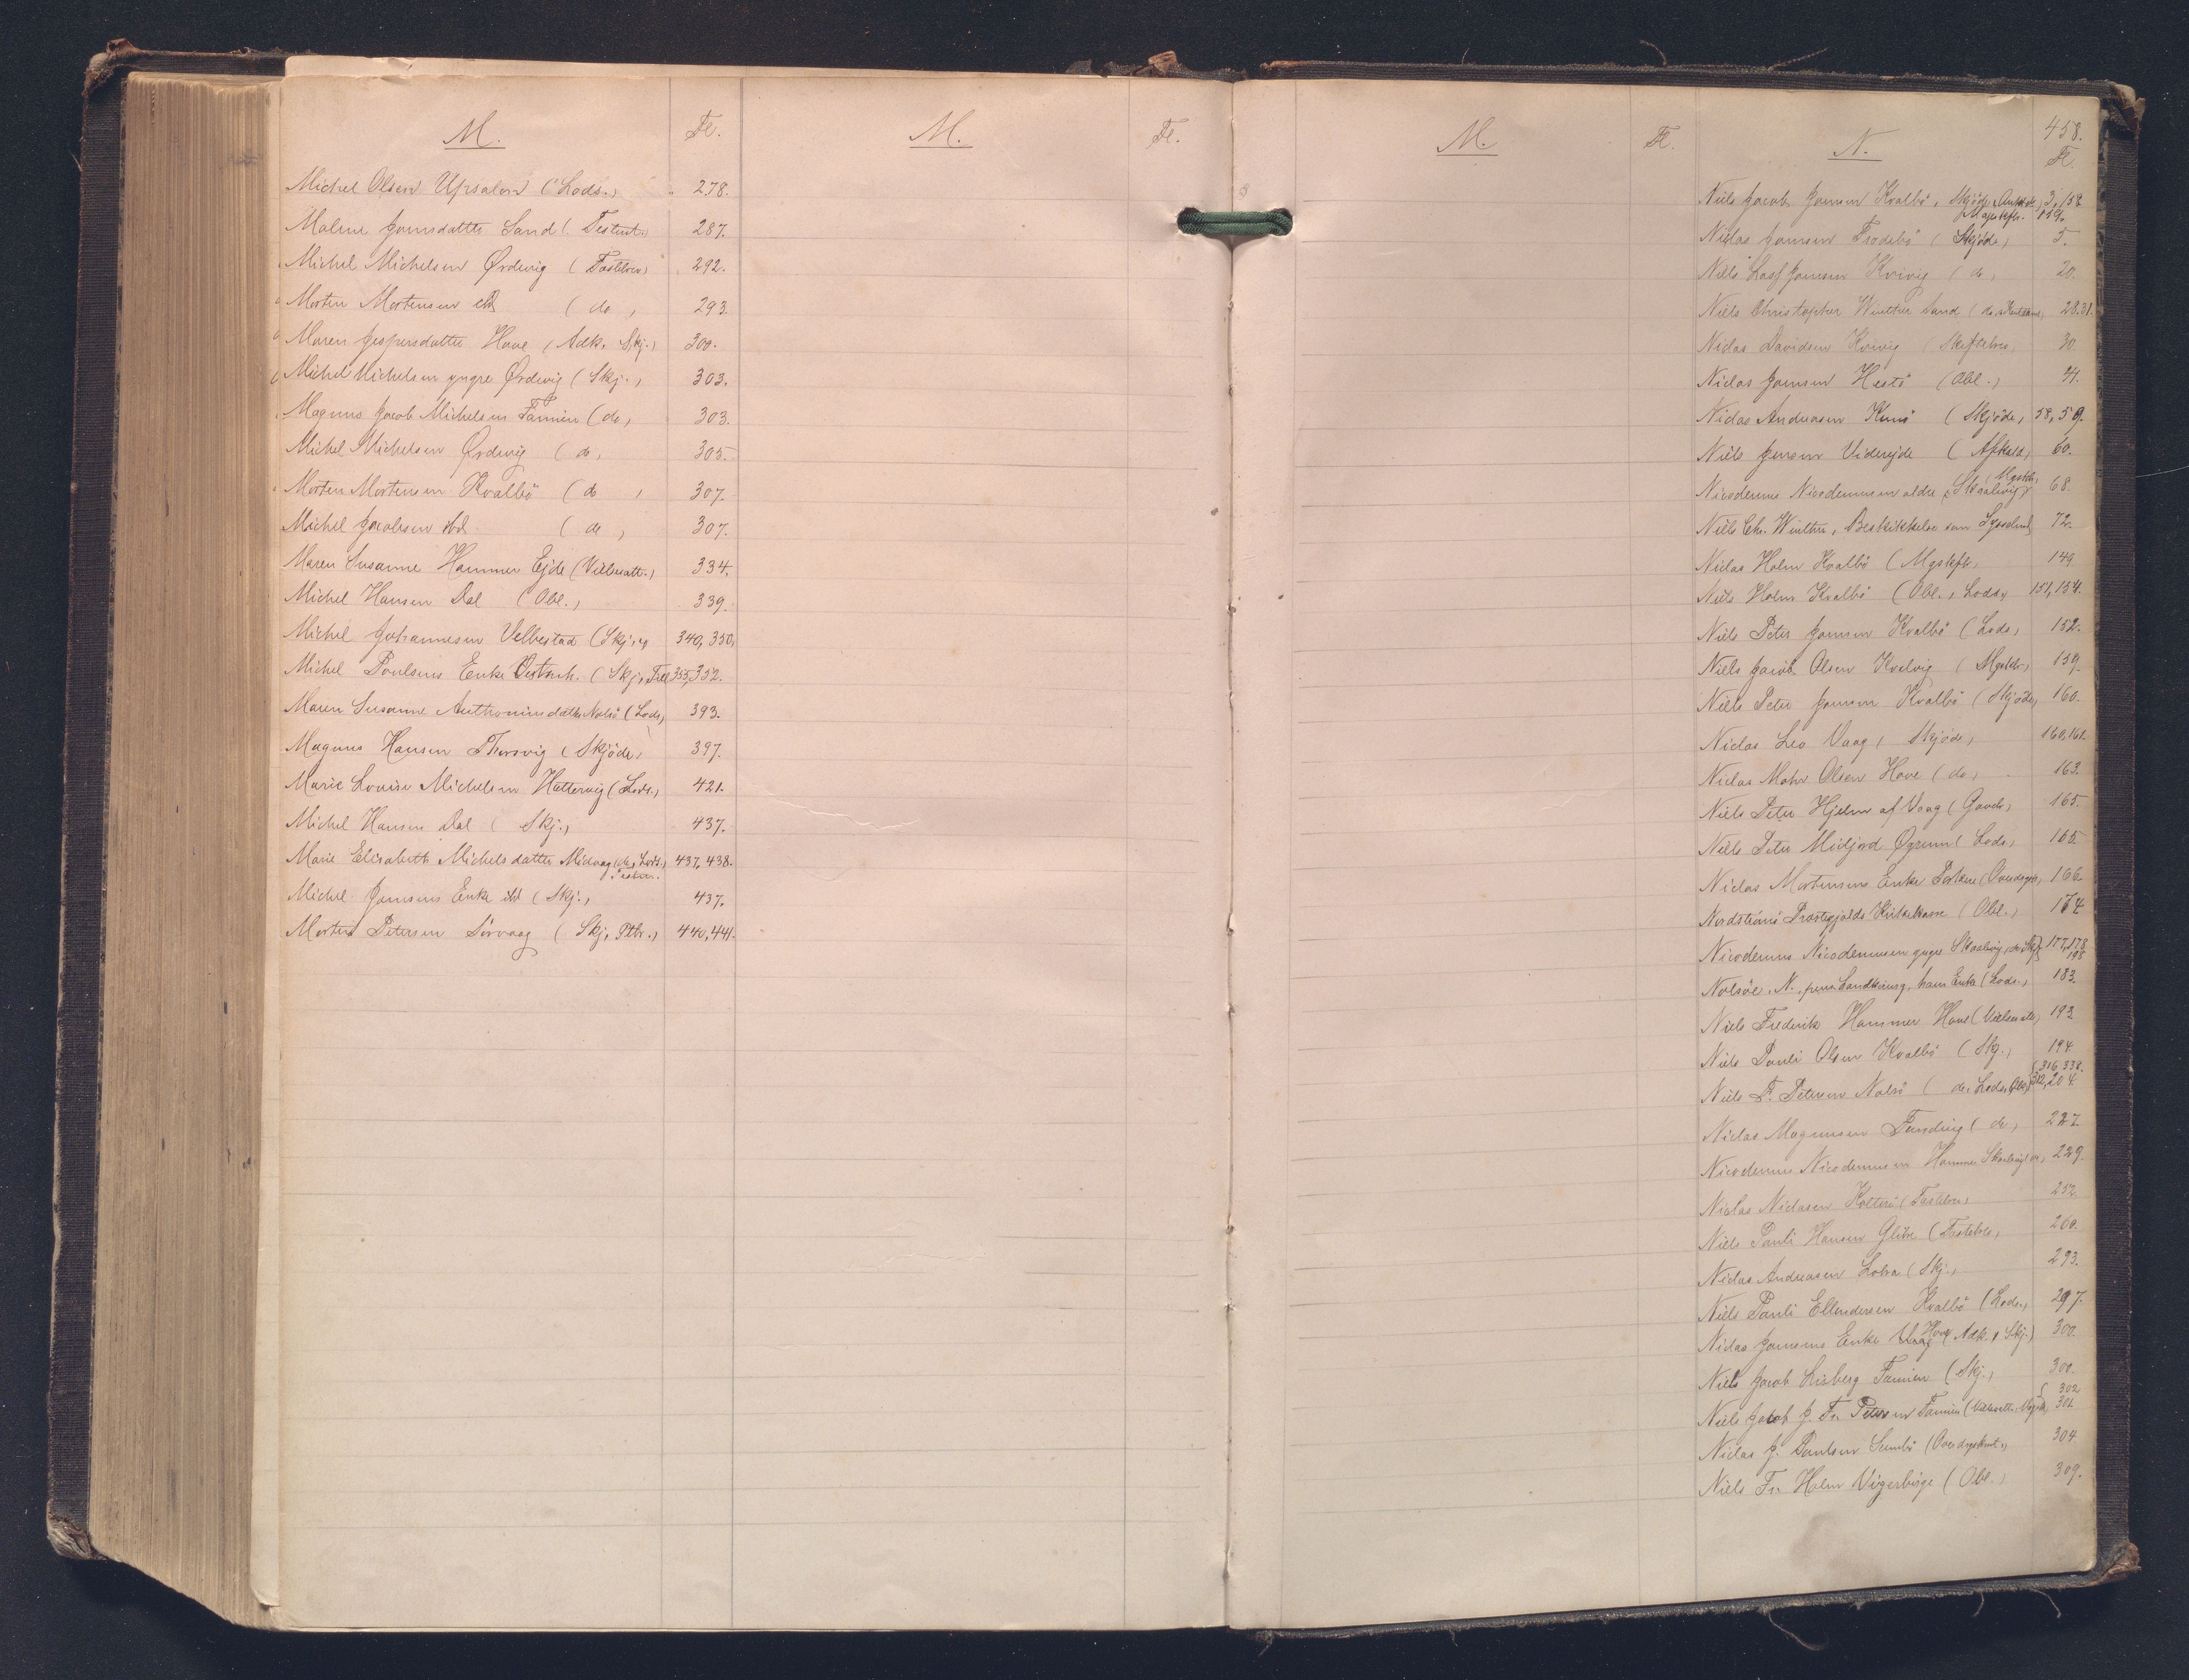 M.
Fl.
M.
Fl.
Michel Olsen Upsalon (Lods.) 278.
Malene Joensdatter Sand (Testent.) 287.
Michel Michelsen Ørdevig (Fæstebrev) 292.
Morten Mortensen ibd (do) 293.
Maren Jespersdatter Hove (Adk. Skj.) 300.
Michel Michelsen yngre Ørdevig (Skj.) 303.
Magnus Jacob Michelsen Famien (do) 303.
Michel Michelsen Ørdevig (do) 305.
Morten Mortensen Kvalbö (do) 307.
Michel Jacobsen ibd (do) 307.
Maren Susanne Hammer Ejde (Vielsesatt.) 334.
Michel Hansen Dal (Obl.) 339.
Michel Johannesen Velbestad (Skj.) 340, 350,
Michel Poulsens Enke (Skj., 355, 352.
Maren Susanne Anthoniusdatter Nolsö (Lods) 393.
Magnus Hansen Thorsvig (Skjöde) 397.
Marie Louise Michelsen Hattervig (Lods.) 421.
Michel Hansen Dal (Skj.) 437.
Marie Elisabeth Michelsdatter Midvaag (do, Lods.) 437, 438.
Testam.
Michel Joensens Enke ibd (Skj.) 437.
Morten Petersen Sörvaag (Skj, Ptbr.) 440, 441.
M.
Fl.
N.
458.
Fl.
Niels Jacob Joensen Kvalbö, Skjöde, 3, 158
Mageskfte. 159.
Niclas Joensen Frodebö (Skjöde) 5.
Niels Joensen Kvivig (do) 20.
Niels Christopher Winther Sand (do 28.31.
Niclas Davidsen Kvivig (Skiftebrev) 30
Niclas Joensen Hestö (Obl.)
Niclas Andreasen Kunö (Skjöde) 58, 59.
Niels Jensen Viderejde (Afkald) 60.
Nicodemus Nicodemusen ældre Skaalevig (Mgskft) 68.
Niels Chr. Winther, Beskikkelse som Sysselmd 72.
Niclas Holm Kvalbö (Mgskft) 149
Niels Holm Kvalbö (Obl., Lods) 151, 154.
Niels Peter Joensen Kvalbö (Lods) 152.
Niels Jacob Olsen Kvalvig 159.
Niels Peter Joensen Kvalbö (Skjöde) 160.
Niclas Leo Vaag (Skjöde) 160, 161.
Niclas Mohr Olsen Hove (do) 163.
Niels Peter Hjelm af Vaag (Gavebr) 165.
Niels Peter Midjord Øgrum (Lods) 165.
Niclas Mortensens Enke Porkere 166.
Nordströmö Præstegjelds Kirkekasse (Obl.) 174
Nicodemus Nicodemusen yngre Skaalevig 177, 178
198
Nolsöe, N., pens. Landkirurg, hans Enke (Lods.) 183.
Niels Frederik Hammer Hove (Vielseatt) 193
Niels Pauli Olsen Kvalbö (Skj.) 194.
316, 338.
Niels P. Petersen Nolsö (do, Lods, Obl.) 312, 204.
Niclas Magnussen Funding (do) 227.
Nicodemus Nicodemusen Hamme Skaalevig (do) 229.
Niclas Niclasen Koltur (Fæstebrev) 252.
Niels Pauli Hansen (Fæstebr) 260.
Niclas Andreasen Lobra (Skj.) 293.
Niels Pauli Ellendersen Kvalbö (Lods.) 297.
Niclas Joensens Enke Vaag Hove (Adk., Skj.) 300.
Niels Jacob Lisberg Famien (Skj.) 300.
302
Niels Jacob J. Fr. Petersen Famien (Vielseatt. 301.
Niclas J. Poulsen Sumbö 304.
Niels Fr. Holm Vigerbirge (Obl.) 309.